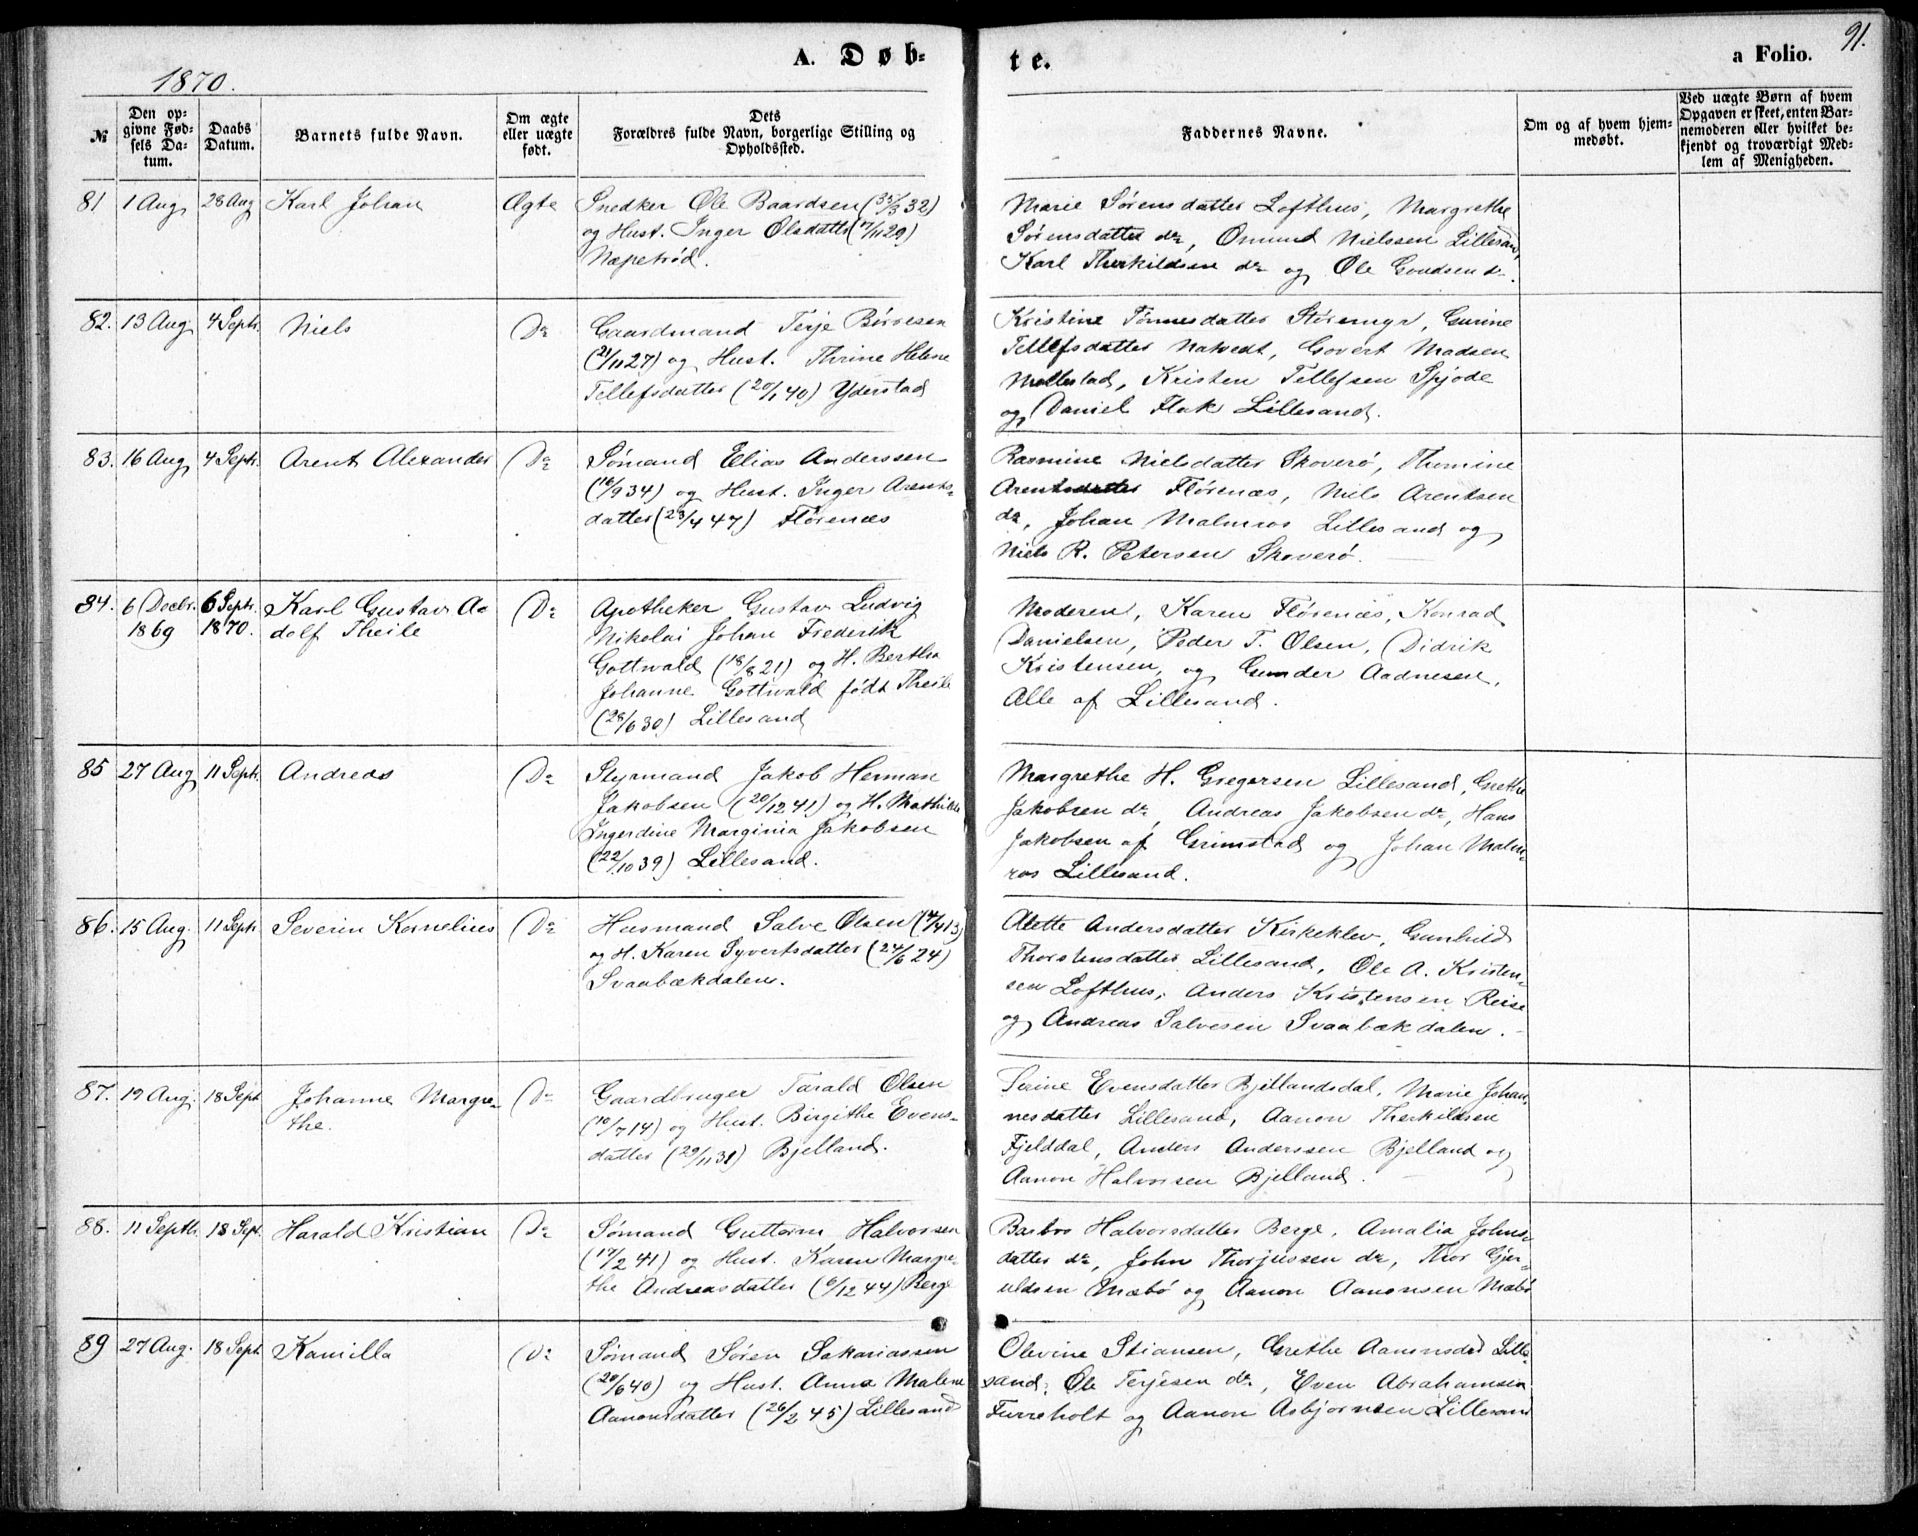 1870.
A. Døb-
te.
a Folio.
91.
№
Den op-
givne Fød-
sels Da-
tum.
Daabs
Datum.
Barnets fulde Navn.
Om ægte
eller uægte
født.
Dets
Forældres fulde Navn, borgerlige Stilling og
Opholdssted.
Faddernes Navne.
Om og af hvem hjem-
medøbt.
Ved uægte Børn af hvem
Opgaven er skeet, enten Bar-
nemoderen eller hvilket be-
kjendt og troværdigt Med-
lem af Menigheden.
81 1 Aug, 28 Aug Karl Johan Ægte
Snedker Ole Baardsen
og Hust. Inger Olsdatter (17/11 29)
Næpetrød.
Marie Sørensdatter Lofthus, Margrethe
Sørensdatter do, Omund Nielssen Lillesand,
Karl Therkildsen do og Ole
82. 13 Aug 4 Septr. Niels Do
Gaardmand Terje Børresen
(21/11 27) og Hust. Thrine Helene
Tellefsdatter (20/1 40) Yderstad
Kristine Tønnesdatter Støremyr, Gurine
Tellefsdatter Natvedt, Govert Madsen
Møllestad, Kristen Tellefsen Spjode
og Daniel Flak Lillesand.
83. 16 Aug 4 Septr. Arent Alexander Do
Sømand Elias Anderssen
(16/9 34) og Hust. Inger Arents-
datter (23/4 47) Flørenæs
Rasmine Nielsdatter Skoverø, Thomine
Arentsdatter Flørenæs, Niels Arentsen
do, Johan Malmros Lillesand og
Niels R. Petersen Skoverø.
84. 6 Decbr. 6 Septr. Karl Gustav Ad
1869 1870. dolf Theile Do
Apotheker Gustav Ludvig
Nikolai Johan Frederik
Gottwald (18/8 21) og H. Bertha
Johanne Gottwald født Theile
(28/6 30) Lillesand
Moderen, Karen Flørenæs, Konrad
Danielsen, Peder T. Olsen, Didrik
Kristensen, og Gunder Aadnesen,
Alle af Lillesand.
85 27 Aug 11 Septr. Andreas Do
Styrmand Jakob Herman
Jakobsen (20/12 41) og H. Mathilde
Ingerdine Marginia Jakobsen
(22/10 39) Lillesand.
Margrethe H. Gregersen Lillesand, Grethe
Jakobsen do, Andreas Jakobsen do, Hans
Jakobsen af Grimstad og Johan Malm-
ros Lillesand.
86. 15 Aug. 11 Septr. Severin Kornelius Do
Husmand Salve Olsen
og H. Karen Syvertsdatter (24/6 24)
Svaabækdalen.
Alette Andersdatter Kirkeklev, Gunhild
Thorstensdatter Lillesand, Ole A. Kristen-
sen Lofthus, Anders Kristensen Reise
og Andreas Salvesen Svaabækdalen.
87. 19 Aug. 18 Sept Johanne Margre-
the. Do
Gaardbruger Tarald Olsen
(10/7 14) og Hust. Birgithe Evens-
datter (29/11 31) Bjelland.
Serine Evensdatter Bjellandsdal, Marie Johan-
nesdatter Lillesand, Aanon Therkildsen
Fjelddal, Anders Anderssen Bjelland og
Aanon Halvorsen Bjelland.
88. 11 Septbr. 18 Sept. Harald Kristian Do
Sømand Guttorm Halvorsen
(17/2 41) og Hust. Karen Margre-
the Andreasdatter (6/12 44) Berge
Barbro Halvorsdatter Berge, Amalia Johns-
datter do, John Thorjussen do, Thor Gjer-
uldsen Mæbø og Aanon Aanonsen Mæbø
89 27 Aug. 18 Sept Kamilla Do
Sømand Søren Sakariassen
(20/6 40) og Hust. Anna Malene
Aanonsdatter (26/2 45) Lillesand
Olevine Stiansen, Grethe Aanonsdad Lille-
sand, Ole Terjesen do, Even Abrahamsen
Furreholt og Aanon Asbjørnsen Lillesand